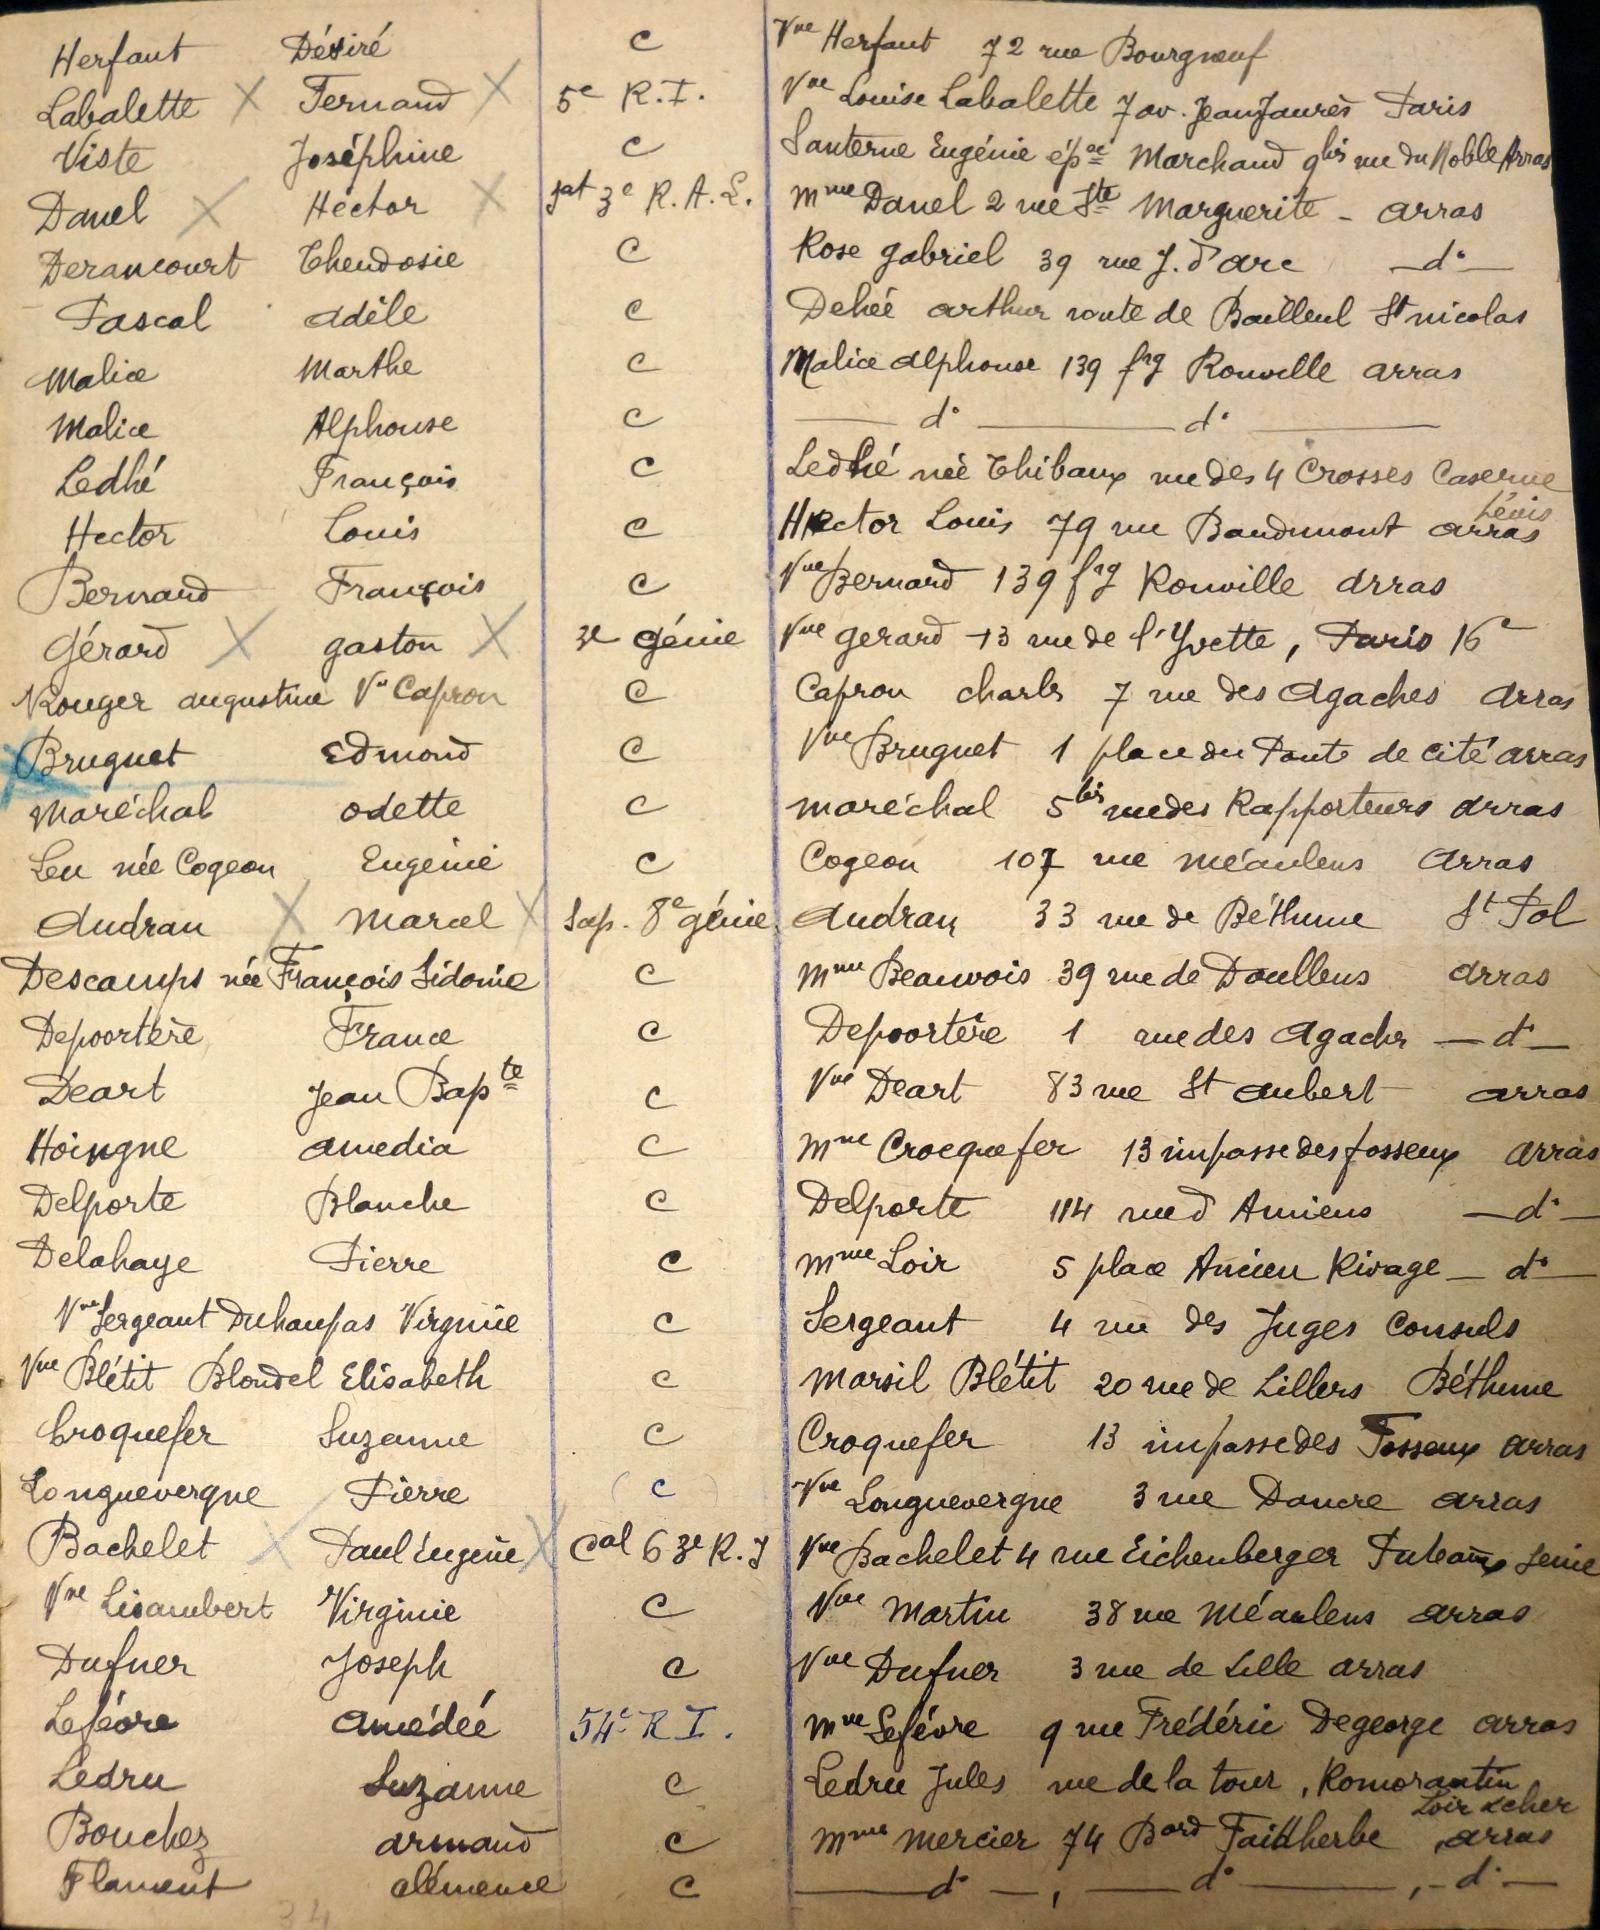 Herfaut Désiré c Vve Herfaut 72 rue Bourgneuf
Labalette X Fernand X 5e R.I. Vve Louise Labalette 7 av. Jean Jaurès Paris
Viste Joséphine c Santerne Eugénie épse Marchand 9bis rue du Noble Arras
Danel X Hector X 3e R.A.L. Mme Danel 2 rue Ste Marguerite - Arras
Derancourt Theudosie c Rose Gabriel 39 rue J. d'Arc —do—
Pascal Adèle c Dehée Arthur route de Bailleul St Nicolas
Malice Marthe c Malice Alphonse 139 fbg Ronville Arras
Malice Alphonse c — do — do —
Ledhé François c Ledhé née Thibaux rue des 4 Crosses Caserne
Lévis
Hector Louis c Hector Louis 79 rue Baudimont Arras
Bernard François c Vve Bernard 139 fbg Ronville Arras
Gérard X Gaston X 3e Génie Vve Gerard 13 rue de l'Yvette, Paris 16e
Rouger Augustine Ve Capron c Capron Charles 7 rue des Agaches Arras
Bruguet Edmond c Vve Bruguet 1 place du Ponts de Cité Arras
Maréchal Odette c Maréchal 5bis rue des Rapporteurs Arras
Leu née Cogeon Eugénie c Cogeon 107 rue Méaulens Arras
Audran X Marcel X Sap. 8e génie Audran 33 rue de Béthune St Pol
Descamps née François Sidonie c Mme Beauvois 39 rue de Doullens Arras
Depoortère France c Depoortère 1 rue des Agaches —do—
Déart Jean Bapte c Vve Deart 83 rue St Aubert Arras
Hoingne Amedia c Mme Crocquefer 13 impasse des fosseux Arras
Delporte Blanche c Delporte 114 rue d'Amiens —do—
Delahaye Pierre c Mme Loir 5 place Ancien Rivage —do—
Vve Sergeant Duhaupas Virginie c Sergeant 4 rue des Juges Consuls
Vve Blétit Blondel Elisabeth c Marsil Blétit 20 rue de Lillers Béthune
Croquefer Suzanne c Croquefer 13 impasse des Fosseux Arras
Longuevergne Pierre (c) Vve Longuevergne 3 rue Doncre Arras
Bachelet X Paul Eugène X Cal 63e R.I Vve Bachelet 4 rue Eichenberger Puteaux Seine
Vve Lisambert Virginie c Vve Martin 38 rue Méaulens Arras
Dufner Joseph c Vve Dufner 3 rue de Lille Arras
Lefévre Amédéé 54e R I. Mme Lefévre 9 rue Frédéric Degeorge Arras
Ledru Suzanne c Ledru Jules rue de la tour, Romorantin
Loir & cher
Bouchez Armand c Mme Mercier 74 Bard Faidherbe, Arras
Flament Clémence c —do—, —do—, —do—
34